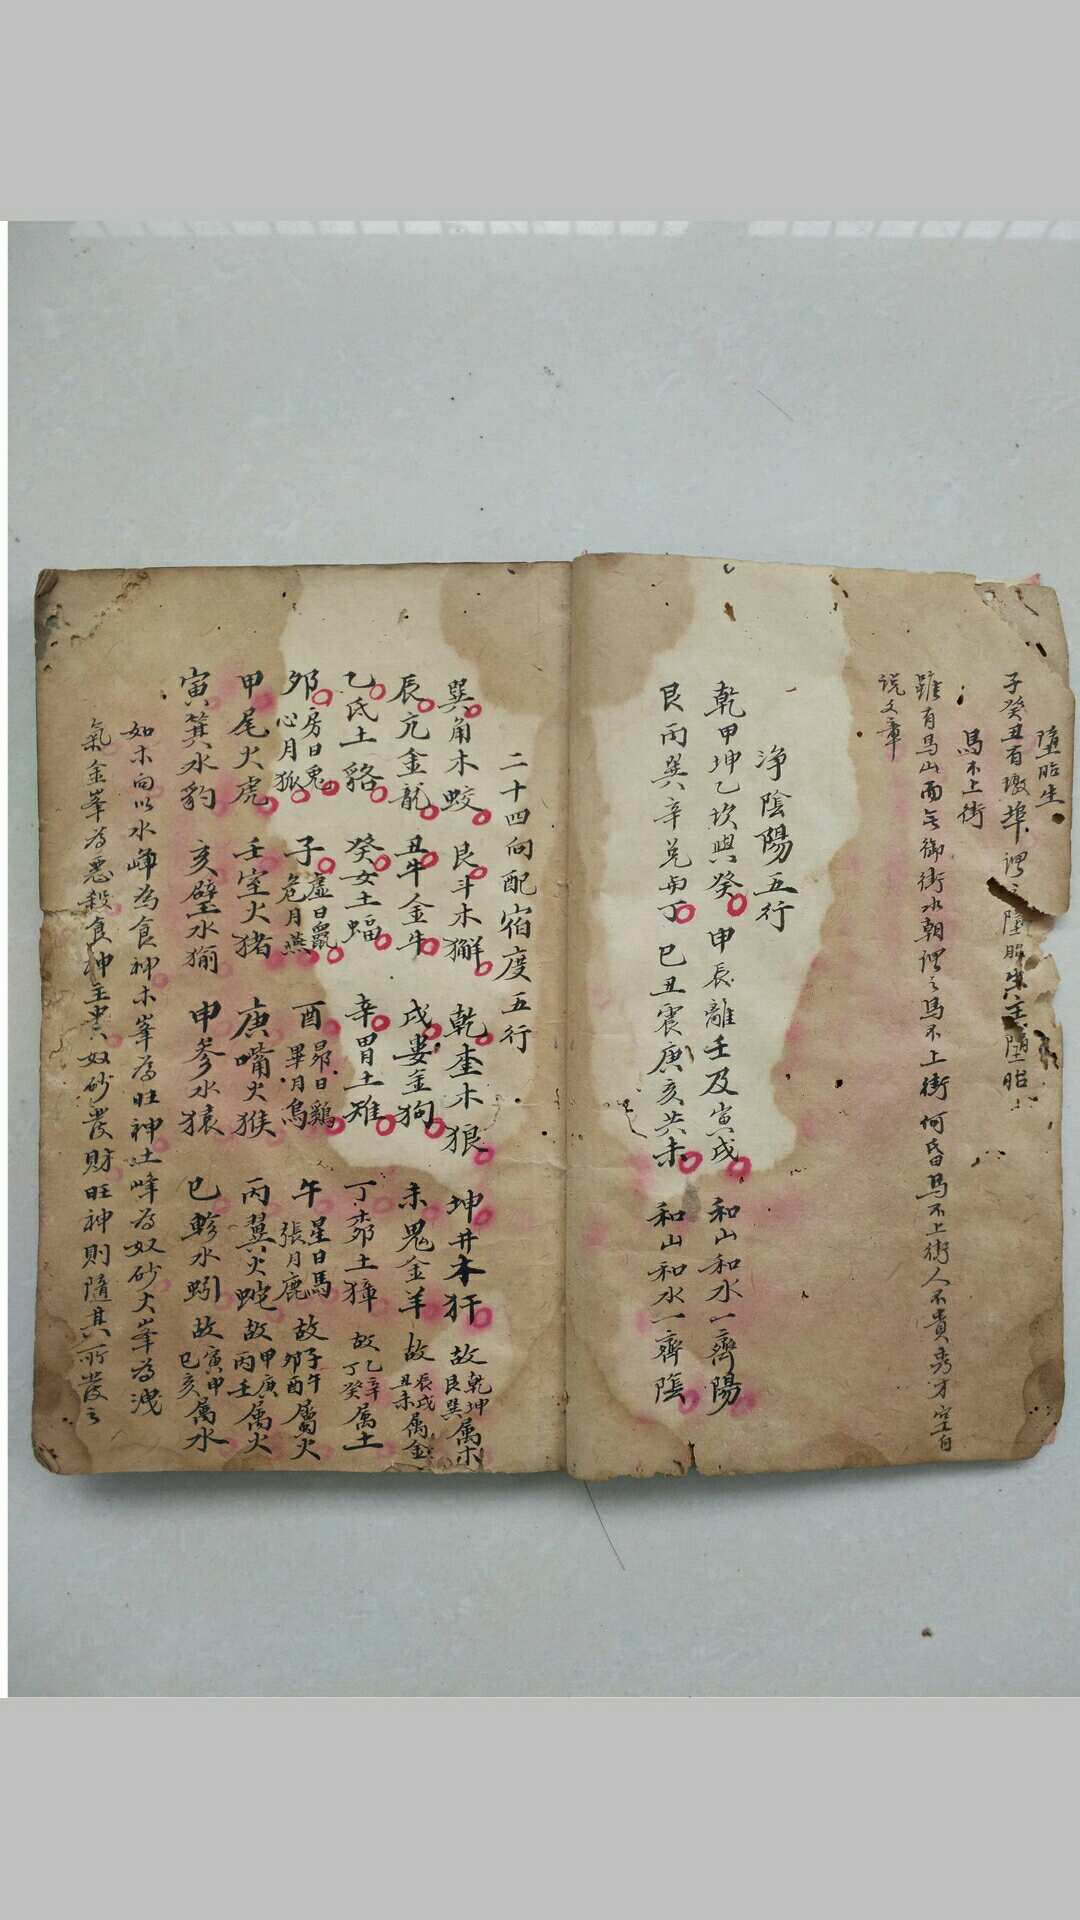 墮胎生
子癸丑有墩埠謂之墮胎生主墮胎
馬不上街
雖有馬山而無御街水朝謂之馬不上街何昏馬不上街人不貴秀才空自
説文章
淨陰陽五行
乾甲坤乙坎與癸申辰離壬及寅戌 和山和水一齊陽
艮丙巽辛兌與丁巳丑震庚亥共未 和山和水一齊陰
二十四向配宿度五行
巽角木蛟 艮斗木獬 乾奎木狼 坤井木犴 故乾坤艮巽属木
辰亢金龍 丑牛金牛 戌婁金狗 未鬼金羊 故辰戌丑未属金
乙氐土貉 癸女土蝠 辛胃土雉 丁柳土獐 故乙辛丁癸属土
夘房日兔心月狐 子虛日鼠危月燕 酉昴日鷄畢月烏 午星日馬張月鹿 故子午夘酉属火
甲尾火虎 壬室火猪 庚嘴火猴 丙翼火蛇 故甲庚丙壬属火
寅箕水豹 亥壁水㺄 申參水猿 巳軫水蚓 故寅申巳亥属水
如木向以水峰為食神木峯為旺神土峰為奴砂火峯為洩
氣金峯為惡殺食神主貴奴砂發財旺神則隨其所發之